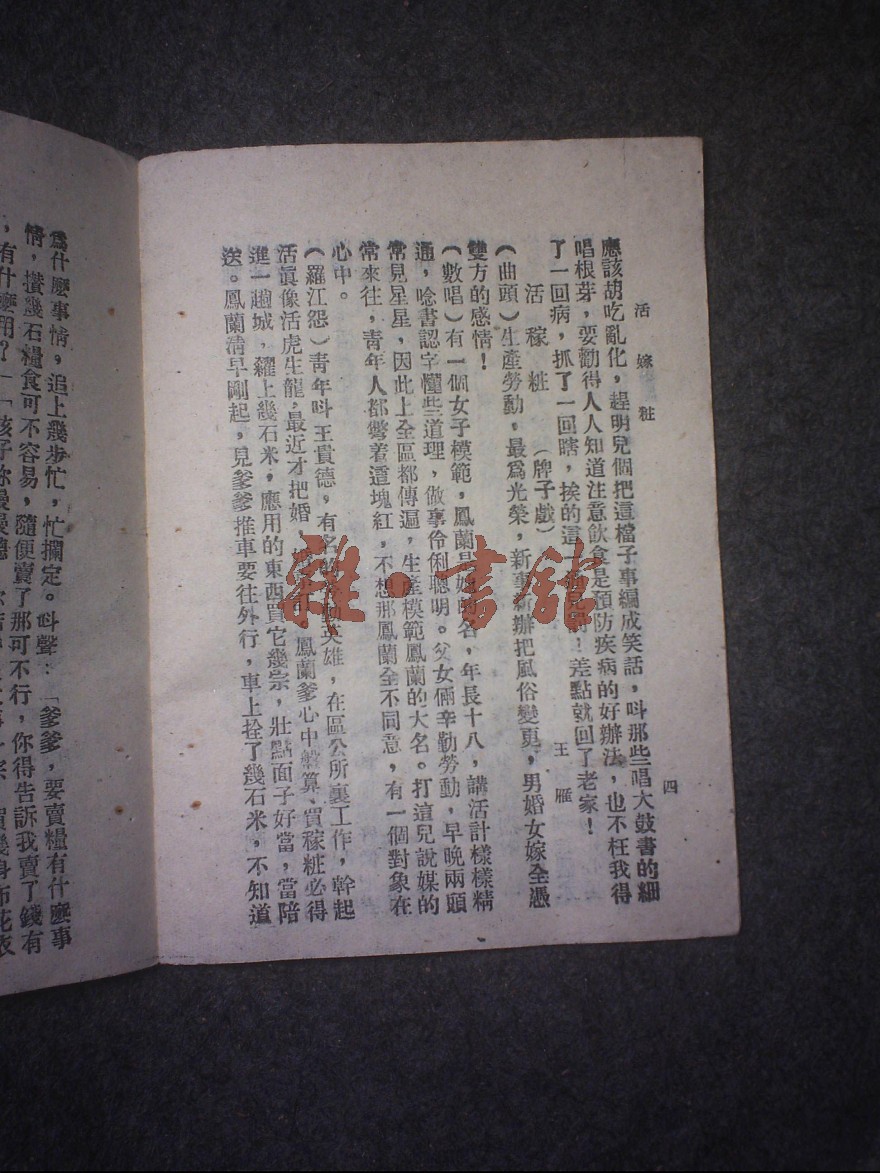 四
活嫁粧
應該胡吃亂化，趕明兒個把這檔子事編成笑話，呌那些唱大鼓書的細
唱根芽，要勸得人人知道注意飲食是預防疾病的好辦法，也不枉我得
了一回病，抓了一回瞎，挨的這一差點就回了老家！
活稼粧（牌子戲）王雁
（曲頭）生產勞動，最爲光榮，新事新辦把風俗變更，男婚女嫁全憑
雙方的感情！
（數唱）有一個女子模範，鳳蘭是她的名，年長十八，講活計樣樣精
通，唸書認字懂些道理，做事伶俐聰明。父女倆辛勤勞動，早晚兩頭
常見星星，因此上全區都傳遍，生產模範鳳蘭的大名。打這兒說媒的
常來往，青年人都彆着這塊紅，不想那鳳蘭全不同意，有一個對象在
心中。
（羅江怨）青年呌王貴德，有名的勞動英雄，在區公所裏工作，幹起
活眞像活虎生龍，最近才把婚，鳳蘭爹心中盤算，買稼粧必得
進一趟城，糴上幾石米，應用的東西買它幾宗，壯點面子好當，當陪
送。鳳蘭淸早剛起，見爹爹推車要往外行，車上拴了幾石米，不知道
爲什麼事情，追上幾步忙，忙攔定。呌聲：「爹爹，要賣糧有什麼事
情，攢幾石糧食可不容易，隨便賣了那可不行，你得告訴我賣了錢有
，有什麼用？」「孩子你慢慢聽